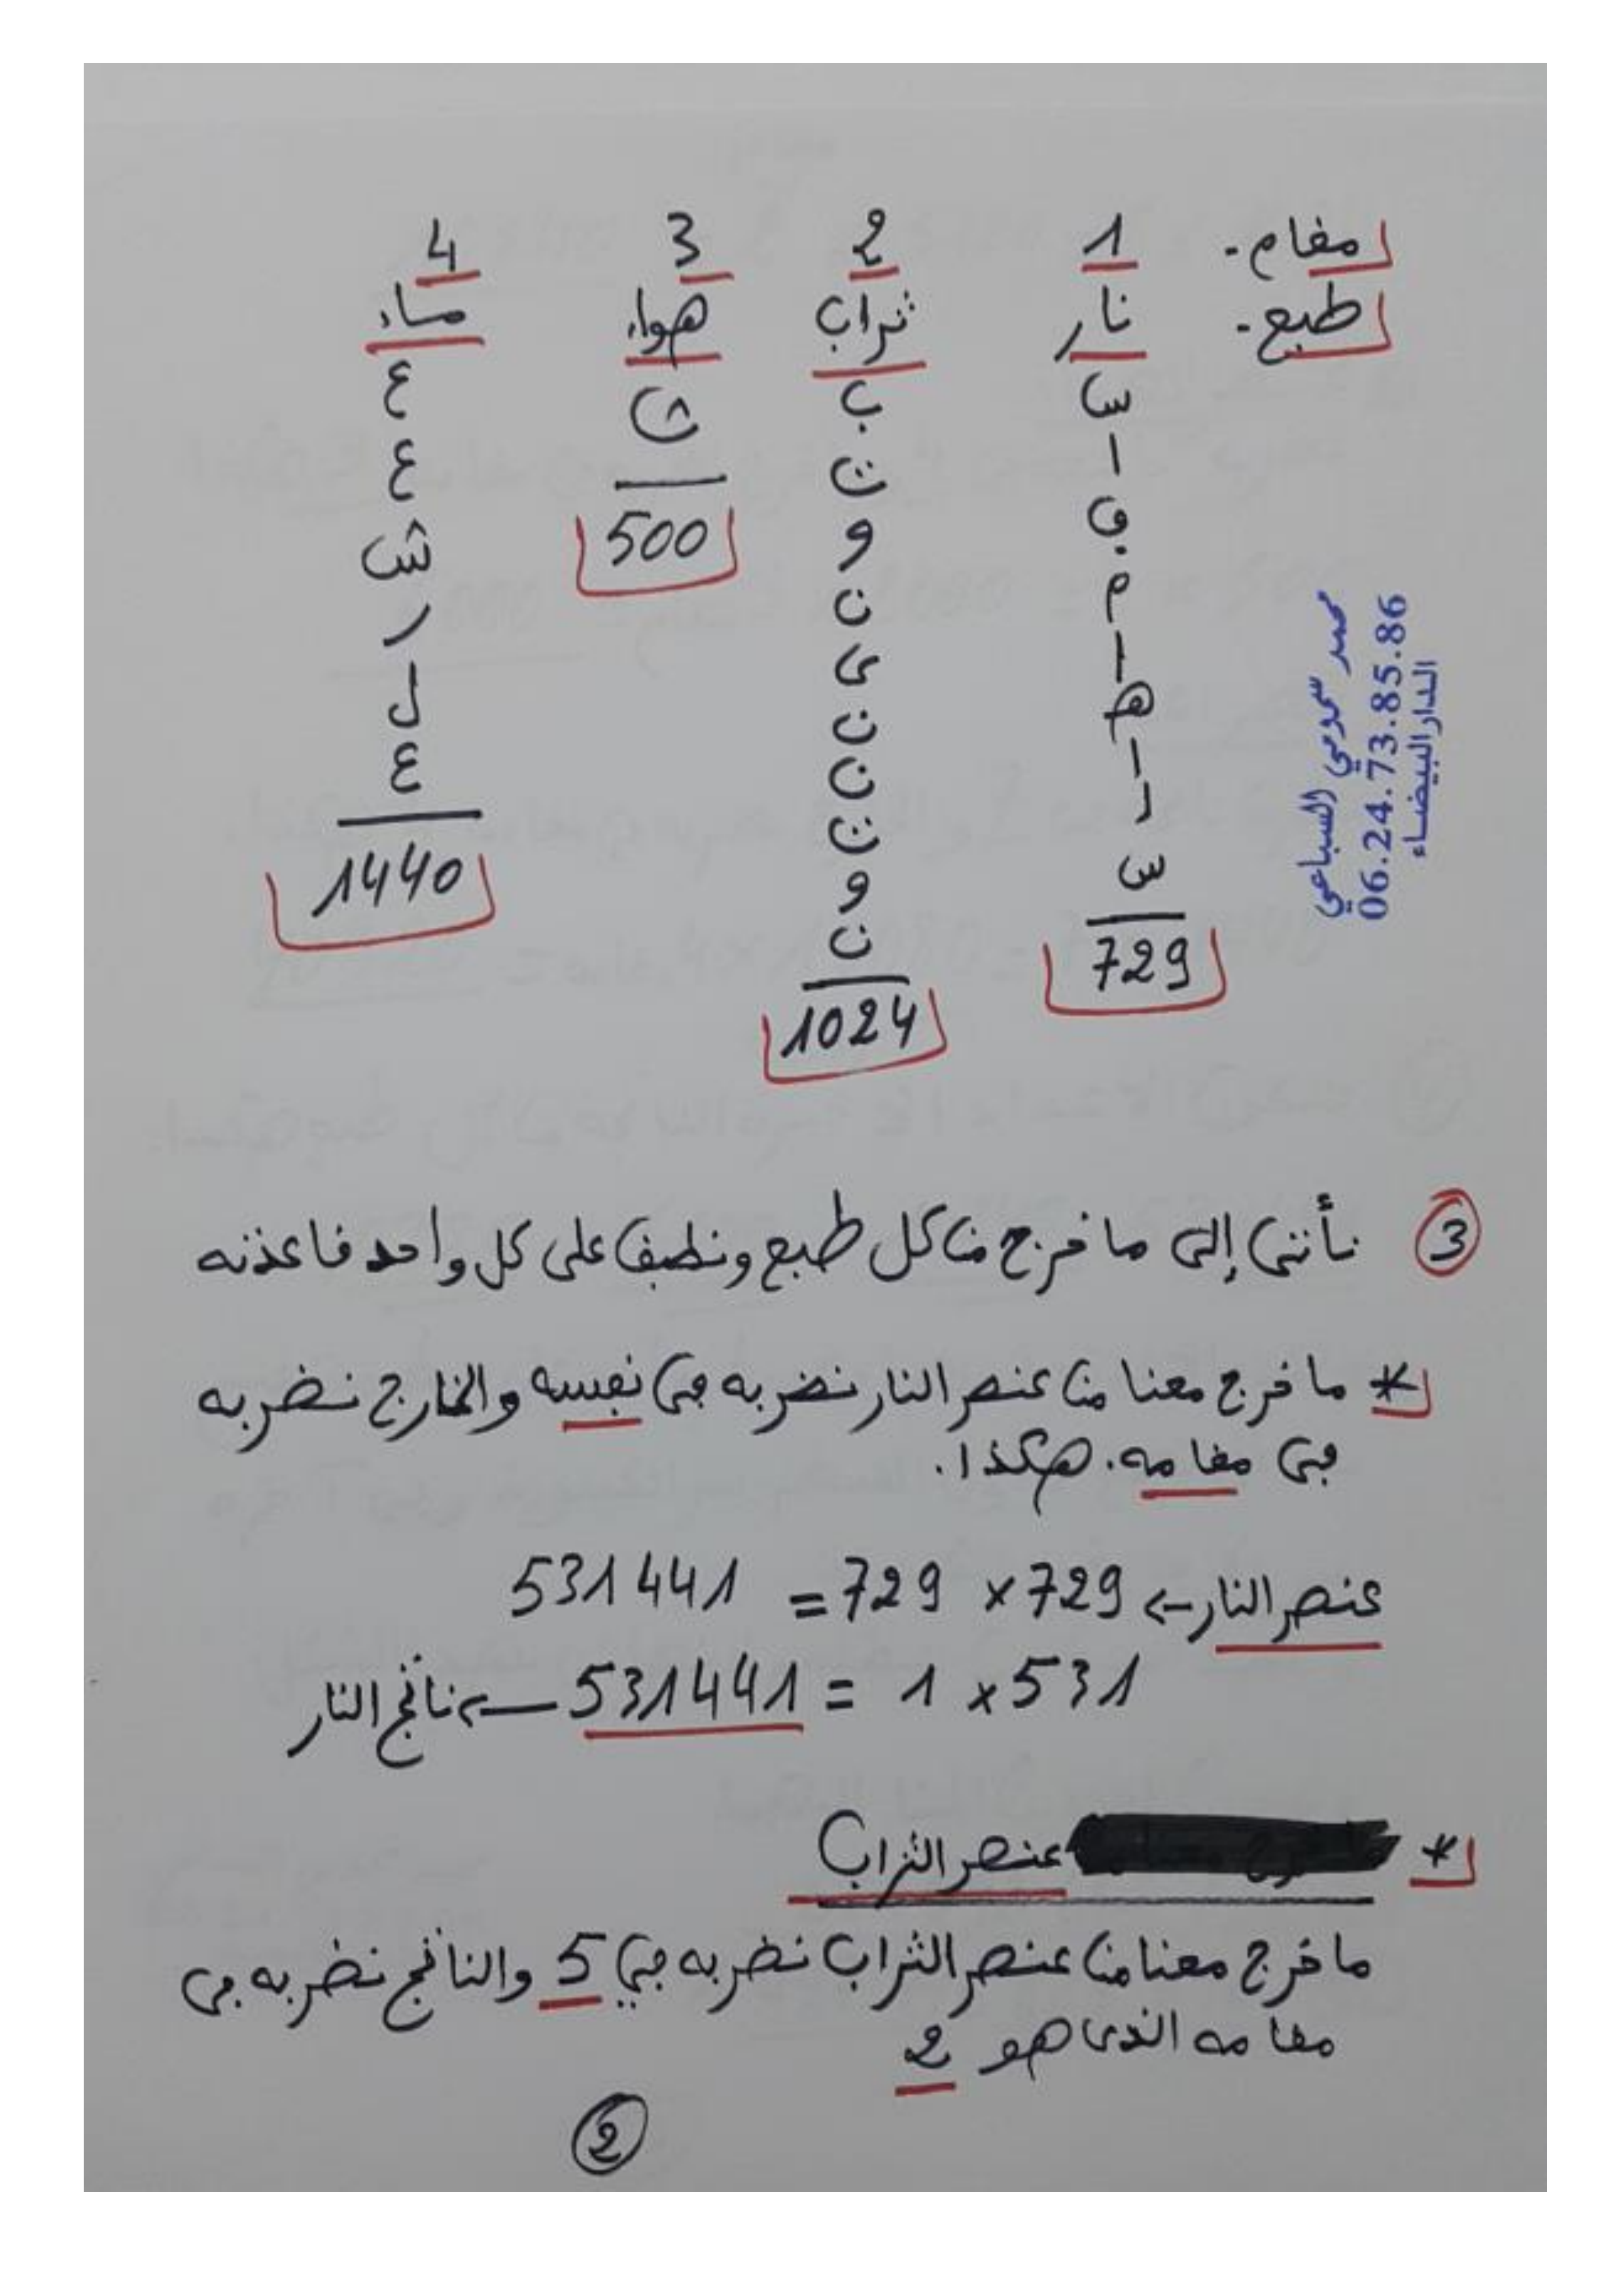 مقام. 1 2 3 4
طبع. نار تراب هواء ماء
س ب ث ع
ا ت ع
ف و ش
م ن ر
ا ى ل
ه ن ع
ا ن
ا ت
س و
ن
729 1024 500 1440
محمد سمومي السباعي
06.24.73.85.86
الدار البيضاء
3 نأتى إلى ما خرج من كل طبع ونطبق على كل واحد قاعدته
* ما خرج معنا من عنصر النار نضربه فى نفسه والخارج نضربه
فى مقامه. هكذا.
عنصر النار ← 729 × 729 = 531441
531 × 1 = 531441 ← ناتج النار
* عنصر التراب
ما خرج معنا من عنصر التراب نضربه في 5 والناتج نضربه فى
مقامه الذى هو 2
2